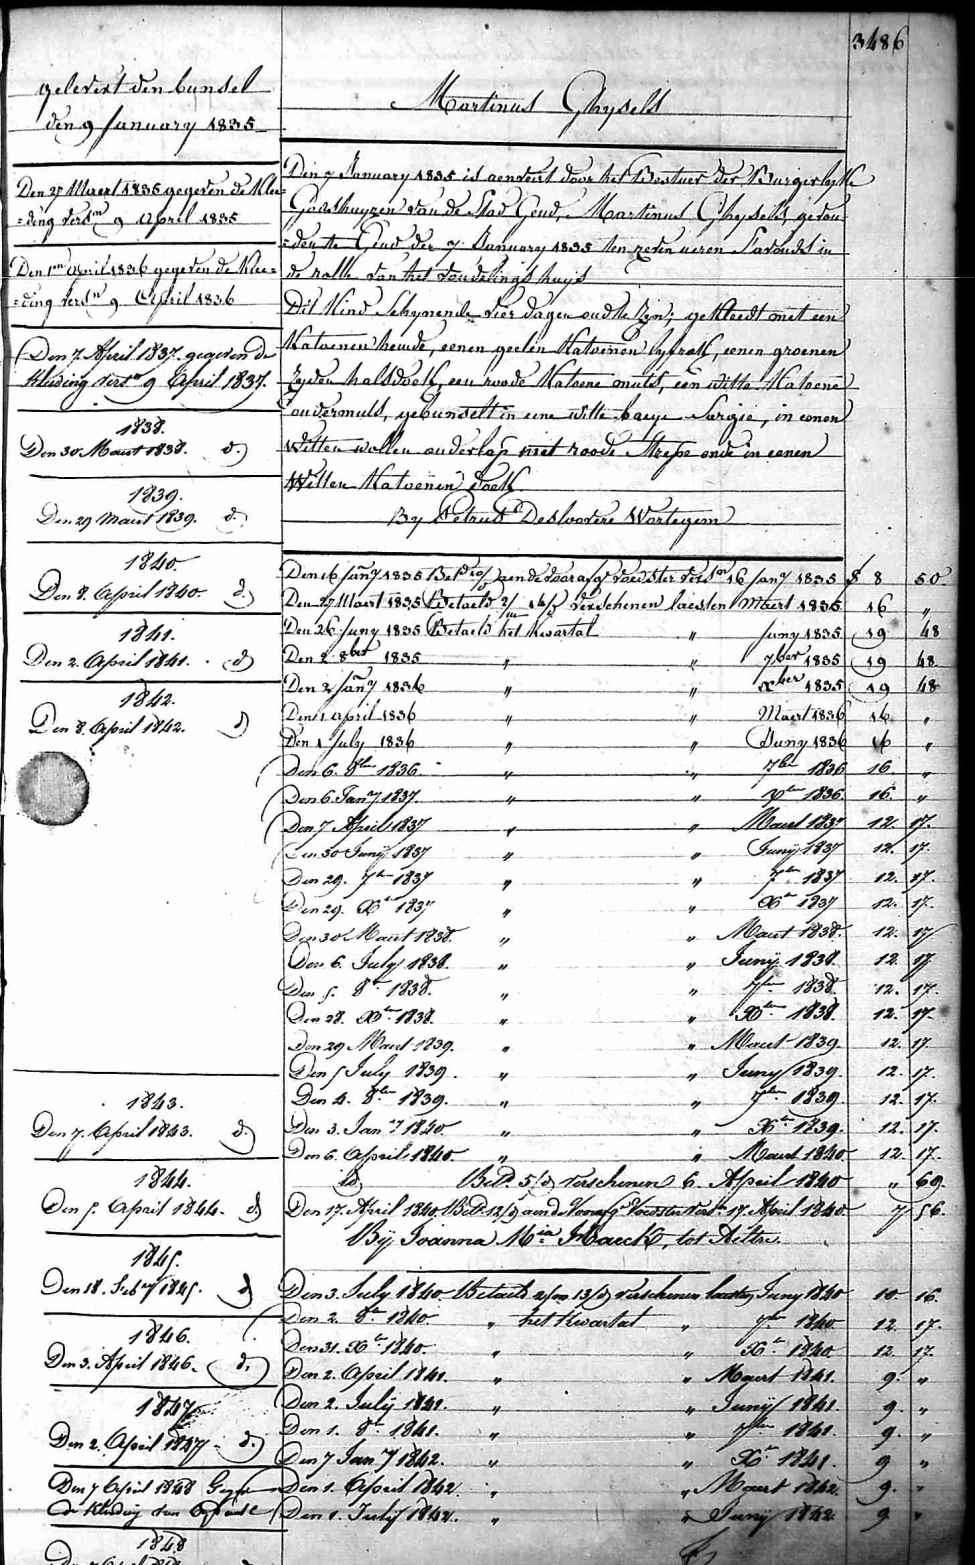 3486
gelevert den bunsel
den 9 January 1835
Den 27 Maert 1835 gegeven de Klee=
=ding versn 9 April 1835
Den 1en April 1836 gegeven de Klee=
=ding versn 9 April 1836
Den 7 April 1837. gegeven de
Kleeding versn 9 April 1837.
1838.
Den 30 Maert 1838. d.
1839.
Den 29 Maert 1839. d.
1840.
Den 8. April 1840. d.
1841.
Den 2. April 1841. d
1842.
Den 8. April 1842. d
1843.
Den 7. April 1843. d.
1844.
Den 5. April 1844. d
1845.
Den 18. Feby 1845. d
1846.
Den 3. April 1846. d.
1847
Den 2. April 1847 d.
Den 7 April 1848
1848
Martinus Ghysels
Den 9 January 1835 is aenveert door het Bestuer der Burgerlyke
Godshuyzen van de Stad Gend, Martinus Ghysels, gevon=
=den te Gend den 7 January 1835 ten zeven ueren s'avonds in
de rolle van het vondelings huys
Dit Kind Schynende vier dagen oud te zyn, gekleedt met een
Katoenen hemde, eenen geelen Katoenen lyfrok, eenen groenen
Zyden halsdoek, een roode Katoene muts, een witte Katoene
ondermuts, gebunselt in eene witte baeye Sargie, in eenen
Witten wollen onderlap met roode Strepe ende in eenen
Witten Katoenen doek.
By Petrus Desloovere Wortegem
Den 16 Jany 1835 aen de voorafge voedster versn 16 Jany 1835 8 50
Den 27 Maert 1835 Betaeld verschenen laesten Maert 1835 16 "
Den 26 Juny 1835 Betaeld het Kwartal " Juny 1835 19 48
Den 2 8ber 1835 " " 7ber 1835 19 48
Den 2 Jany 1836 " " Xber 1835 19 48
Den 1 April 1836 " " Maert 1836 16 "
Den 1 July 1836 " " Juny 1836 16 "
Den 6. 8ber 1836. " " 7ber 1836 16. "
Den 6. Jany 1837. " " Xber 1836. 16. "
Den 7 April 1837 " " Maert 1837 12. 17.
Den 30 Juny 1837 " " Juny 1837 12. 17.
Den 29. 7ber 1837 " " 7ber 1837 12. 17.
Den 29. Xber 1837 " " Xber 1837 12. 17.
Den 30 Maert 1838. " " Maert 1838. 12. 17
Den 6. July 1838. " " Juny 1838. 12. 17
Den 5. 8ber 1838. " " 7ber 1838. 12. 17.
Den 28. Xber 1838. " " Xber 1838. 12. 17.
Den 29 Maert 1839. " " Maert 1839 12. 17.
Den 5 July 1839. " " Juny 1839. 12. 17.
Den 4. 8ber 1839. " " 7ber 1839. 12. 17.
Den 3. Jany 1840. " " Xber 1839. 12. 17.
Den 6. April 1840. " " Maert 1840. 12. 17.
id Betd. 5/d verschenen 6. April 1840 " 69.
Den 17. April 1840 Betd. 12/d aen de Voorafge Voedster versn 17. April 1840. 7 56.
Bij Joanna Mia Maeck, tot Aeltre.
Den 3. July 1840 Betaeld 2/m 13/d verschenen laesten Juny 1840 10. 16.
Den 2. 8ber 1840. " het Kwartal " 7ber 1840 12. 17.
Den 31. Xber 1840. " " Xber 1840 12. 17.
Den 2. April 1841. " " Maert 1841. 9. "
Den 2. July 1841. " " Juny 1841. 9. "
Den 1. 8ber 1841. " " 7ber 1841. 9. "
Den 7 Jany 1842. " " Xber 1841. 9 "
Den 1. April 1842. " " Maert 1842. 9. "
Den 1. July 1842. " " Juny 1842. 9 "